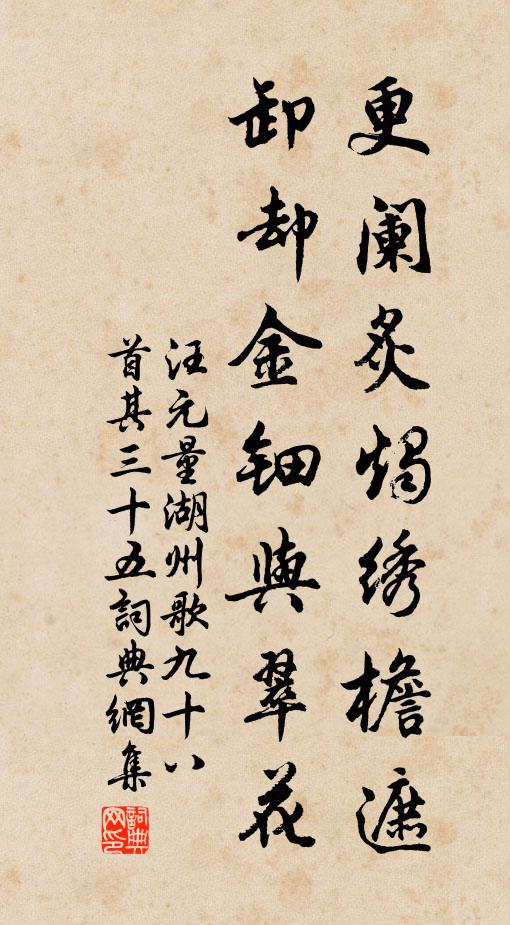 更闌炙燭綉檐遮
卸却金鈿與翠花
汪元量湖州歌九十八
首其三十五詞典網集
詞典网印